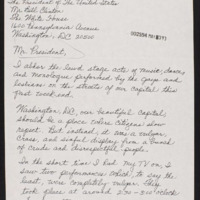 The President of The United States
Mr. Bill Clinton
The White House
1600 Pennsylvania Avenue
Washington, D.C. 20500
Mr. President,
I abhor the lewd stage acts of music, dance
and monologue performed by the Gays and
Lesbians on the streets of our Capital this
past week end.
Washington, D.C., our beautiful Capital,
should be a place where citizens show
respect. But instead, it was a vulgar,
crass, and sinful display from a bunch
of crude and disrespectful people.
In the short time I had my TV on, I
saw two performances which, to say the
least, were completely vulgar. They
took place at around 2:00 - 3:00 o'clock